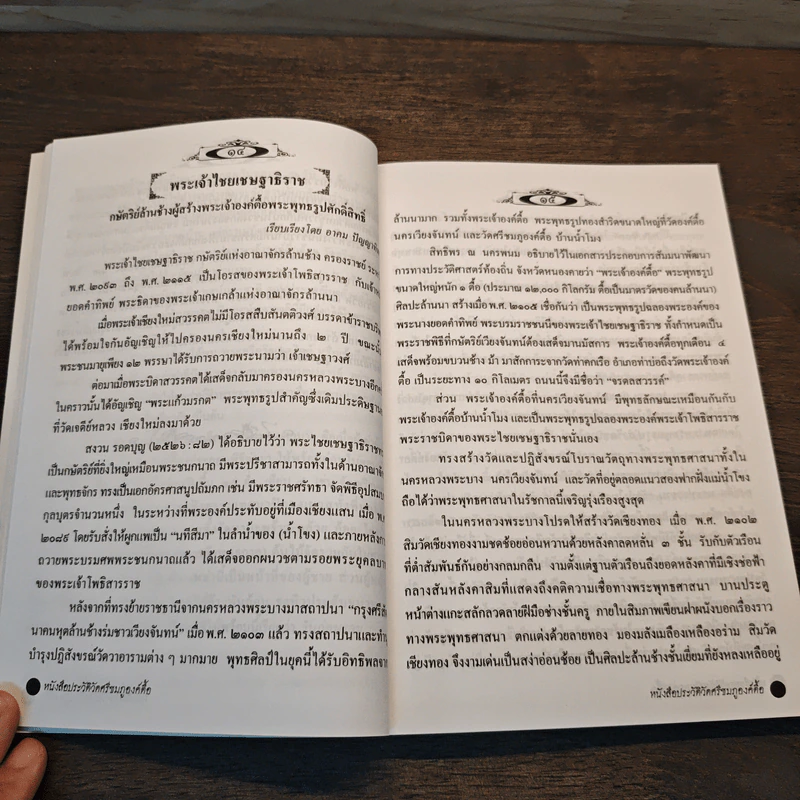 ๑๔
พระเจ้าไชยเชษฐาธิราช
กษัตริย์ล้านช้างผู้สร้างพระเจ้าองค์ตื้อพระพุทธรูปศักดิ์สิทธิ์
เรียบเรียงโดย อาคม ปัญญา
พระเจ้าไชยเชษฐาธิราช กษัตริย์แห่งอาณาจักรล้านช้าง ครองราชย์
พ.ศ. ๒๐๙๓ ถึง พ.ศ. ๒๑๑๕ เป็นโอรสของพระเจ้าโพธิสารราช กับเจ้า
ยอดคำทิพย์ พระธิดาของพระเจ้าเกษเกล้าแห่งอาณาจักรล้านนา
เมื่อพระเจ้าเชียงใหม่สวรรคตไม่มีโอรสสืบสันตติวงศ์ บรรดาข้าราช
ได้พร้อมใจกันอัญเชิญให้ไปครองนครเชียงใหม่นานถึง ๒ ปี ขณะ
พระชนมายุเพียง ๑๒ พรรษาได้รับการถวายพระนามว่า เจ้าเชษฐาวงศ์
ต่อมาเมื่อพระบิดาสวรรคตได้เสด็จกลับมาครองนครหลวงพระบางอีก
ในคราวนั้นได้อัญเชิญ “พระแก้วมรกต” พระพุทธรูปสำคัญซึ่งเดิมประดิษฐาน
ที่วัดเจดีย์หลวง เชียงใหม่ลงมาด้วย
สงวน รอดบุญ (๒๕๒๖:๘๒) ได้อธิบายไว้ว่า พระไชยเชษฐาธิราช
เป็นกษัตริย์ที่ยิ่งใหญ่เหมือนพระชนกนาถ มีพระปรีชาสามารถทั้งในด้านอาณา
และพุทธจักร ทรงเป็นเอกอัครศาสนูปถัมภก เช่น มีพระราชศรัทธา จัดพิธีอุปสม
กุลบุตรจำนวนหนึ่ง ในระหว่างที่พระองค์ประทับอยู่ที่เมืองเชียงแสน เมื่อ พ.
๒๐๘๙ โดยรับสั่งให้ผูกแพเป็น “นทีสีมา” ในลำน้ำของ (น้ำโขง) และภายหลัง
ถวายพระบรมศพพระชนกนาถแล้ว ได้เสด็จออกผนวชตามรอยพระยุคล
ของพระเจ้าโพธิสารราช
หลังจากที่ทรงย้ายราชธานีจากนครหลวงพระบางมาสถาปนา “กรุงศรี
นาคนหุตล้านช้างร่มขาวเวียงจันทน์” เมื่อ พ.ศ. ๒๑๐๓ แล้ว ทรงสถาปนาและ
บำรุงปฏิสังขรณ์วัดวาอารามต่าง ๆ มากมาย พุทธศิลป์ในยุคนี้ได้รับอิทธิพล
หนังสือประวัติวัดศรีชมภูองค์ตื้อ
๑๕
ล้านนามาก รวมทั้งพระเจ้าองค์ตื้อ พระพุทธรูปทองสำริดขนาดใหญ่ที่วัดองค์ตื้อ
นครเวียงจันทน์ และวัดศรีชมภูองค์ตื้อ บ้านน้ำโมง
สิทธิพร ณ นครพนม อธิบายไว้ในเอกสารประกอบการสัมมนาพัฒนา
การทางประวัติศาสตร์ท้องถิ่น จังหวัดหนองคายว่า “พระเจ้าองค์ตื้อ” พระพุทธรูป
ขนาดใหญ่หนัก ๑ ตื้อ (ประมาณ ๑๒,๐๐๐ กิโลกรัม ตื้อเป็นมาตรวัดของคนล้านนา)
ศิลปะล้านนา สร้างเมื่อ พ.ศ. ๒๑๐๕ เชื่อกันว่า เป็นพระพุทธรูปฉลองพระองค์ของ
พระนางยอดคำทิพย์ พระบรมราชชนนีของพระเจ้าไชยเชษฐาธิราช ทั้งกำหนดเป็น
พระราชพิธีที่กษัตริย์เวียงจันทน์ต้องเสด็จมานมัสการ พระเจ้าองค์ตื้อทุกเดือน ๔
เสด็จพร้อมขบวนช้าง ม้า มาสักการะจากวัดท่าคกเรือ อำเภอท่าบ่อถึงวัดพระเจ้าองค์
ตื้อ เป็นระยะทาง ๑๐ กิโลเมตร ถนนนี้จึงมีชื่อว่า “จรดลสวรรค์”
ส่วน พระเจ้าองค์ตื้อที่นครเวียงจันทน์ มีพุทธลักษณะเหมือนกันกับ
พระเจ้าองค์ตื้อบ้านน้ำโมง และเป็นพระพุทธรูปฉลองพระองค์พระเจ้าโพธิสารราช
พระราชบิดาของพระไชยเชษฐาธิราชนั่นเอง
ทรงสร้างวัดและปฏิสังขรณ์โบราณวัตถุทางพระพุทธศาสนาทั้งใน
นครหลวงพระบาง นครเวียงจันทน์ และวัดที่อยู่ตลอดแนวสองฟากฝั่งแม่น้ำโขง
ถือได้ว่าพระพุทธศาสนาในรัชกาลนี้เจริญรุ่งเรืองสูงสุด
ในนครหลวงพระบางโปรดให้สร้างวัดเชียงทอง เมื่อ พ.ศ. ๒๑๐๒
สิมวัดเชียงทองงามชดช้อยอ่อนหวานด้วยหลังคาลดหลั่น ๓ ชั้น รับกับตัวเรือน
ที่ต่ำสัมพันธ์กันอย่างกลมกลืน งามตั้งแต่ฐานตัวเรือนถึงยอดหลังคาที่มีเชิงช่อฟ้า
กลางสันหลังคาสิมที่แสดงถึงคติความเชื่อทางพระพุทธศาสนา บานประตู
หน้าต่างแกะสลักลวดลายฝีมือช่างชั้นครู ภายในสิมภาพเขียนฝาผนังบอกเรื่องราว
ทางพระพุทธศาสนา ตกแต่งด้วยลายทอง มองมลังเมลืองเหลืองอร่าม สิมวัด
เชียงทอง จึงงามเด่นเป็นสง่าอ่อนช้อย เป็นศิลปะล้านช้างชั้นเยี่ยมที่ยังหลงเหลืออยู่
หนังสือประวัติวัดศรีชมภูองค์ตื้อ